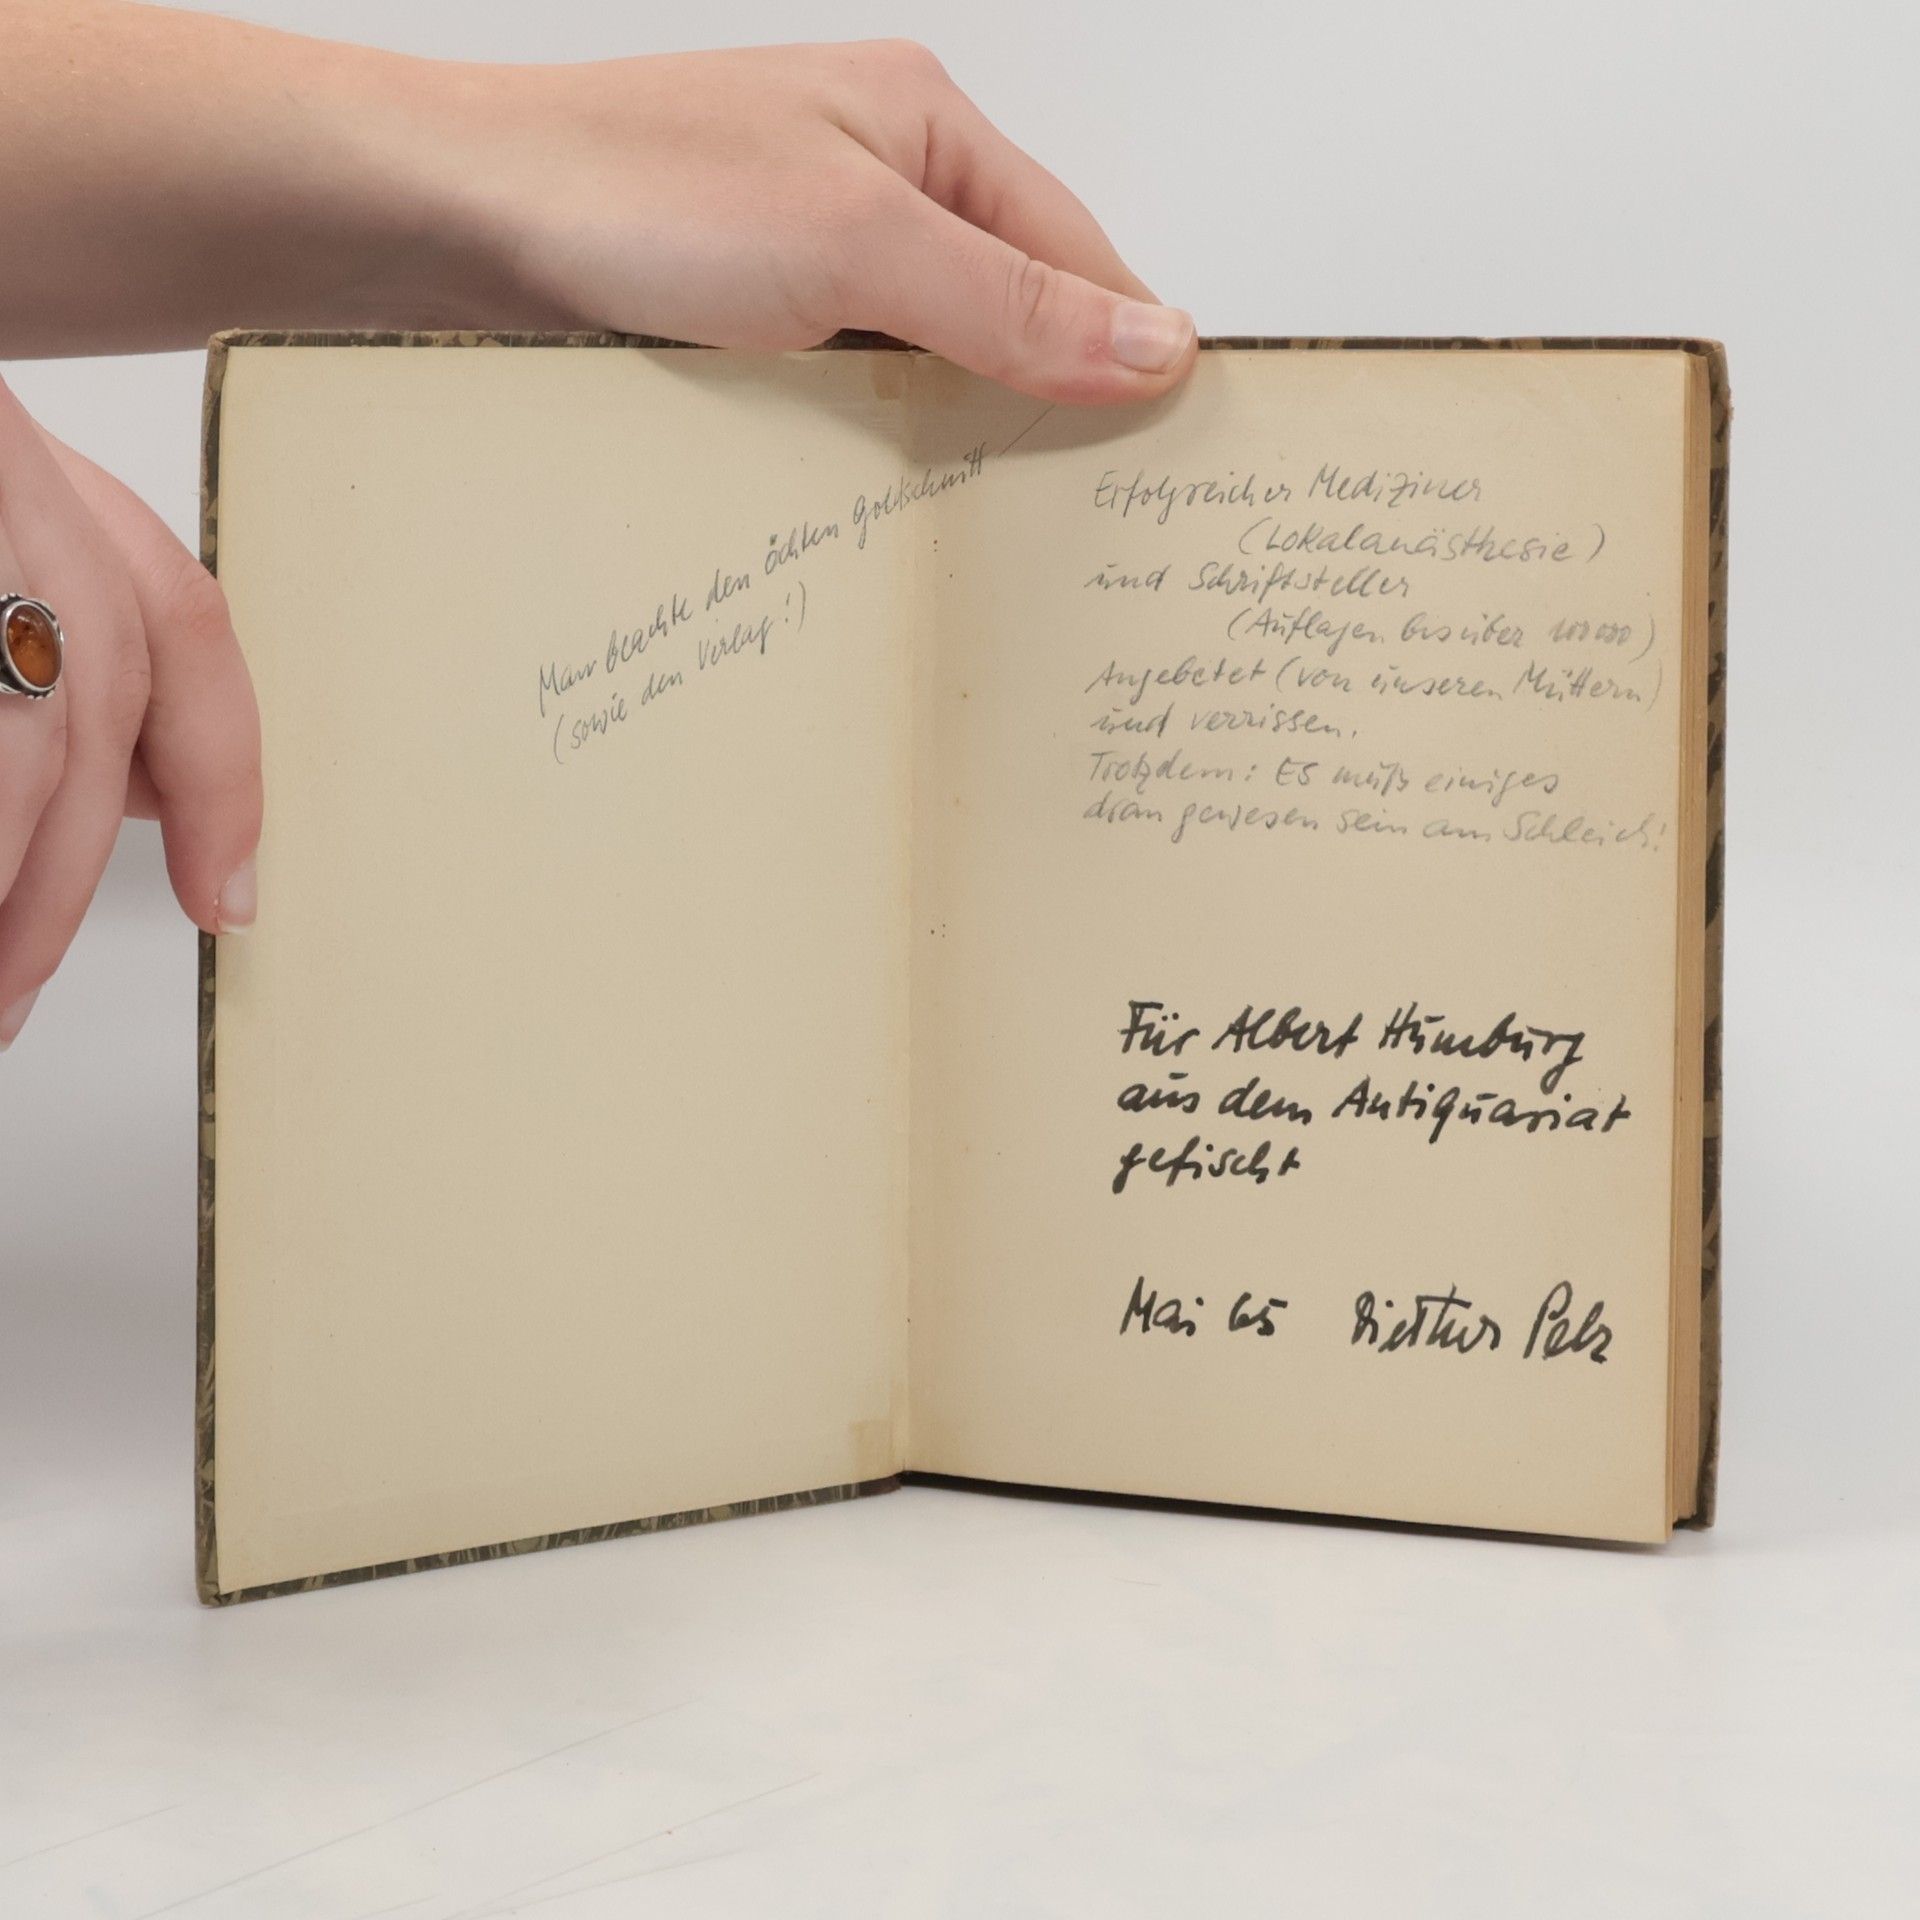 Man beachte den öchten Goldschnitt
(sowie den Verlag!)
Erfolgreicher Mediziner
(Lokalanästhesie)
und Schriftsteller
(Auflagen bis über 100 000)
Angebetet (von unseren Müttern)
und verrissen.
Trotzdem: Es muß einiges
dran gewesen sein am Schleich!
Für Albert Humburg
aus dem Antiquariat
gefischt
Mai 65 Diether Pelz